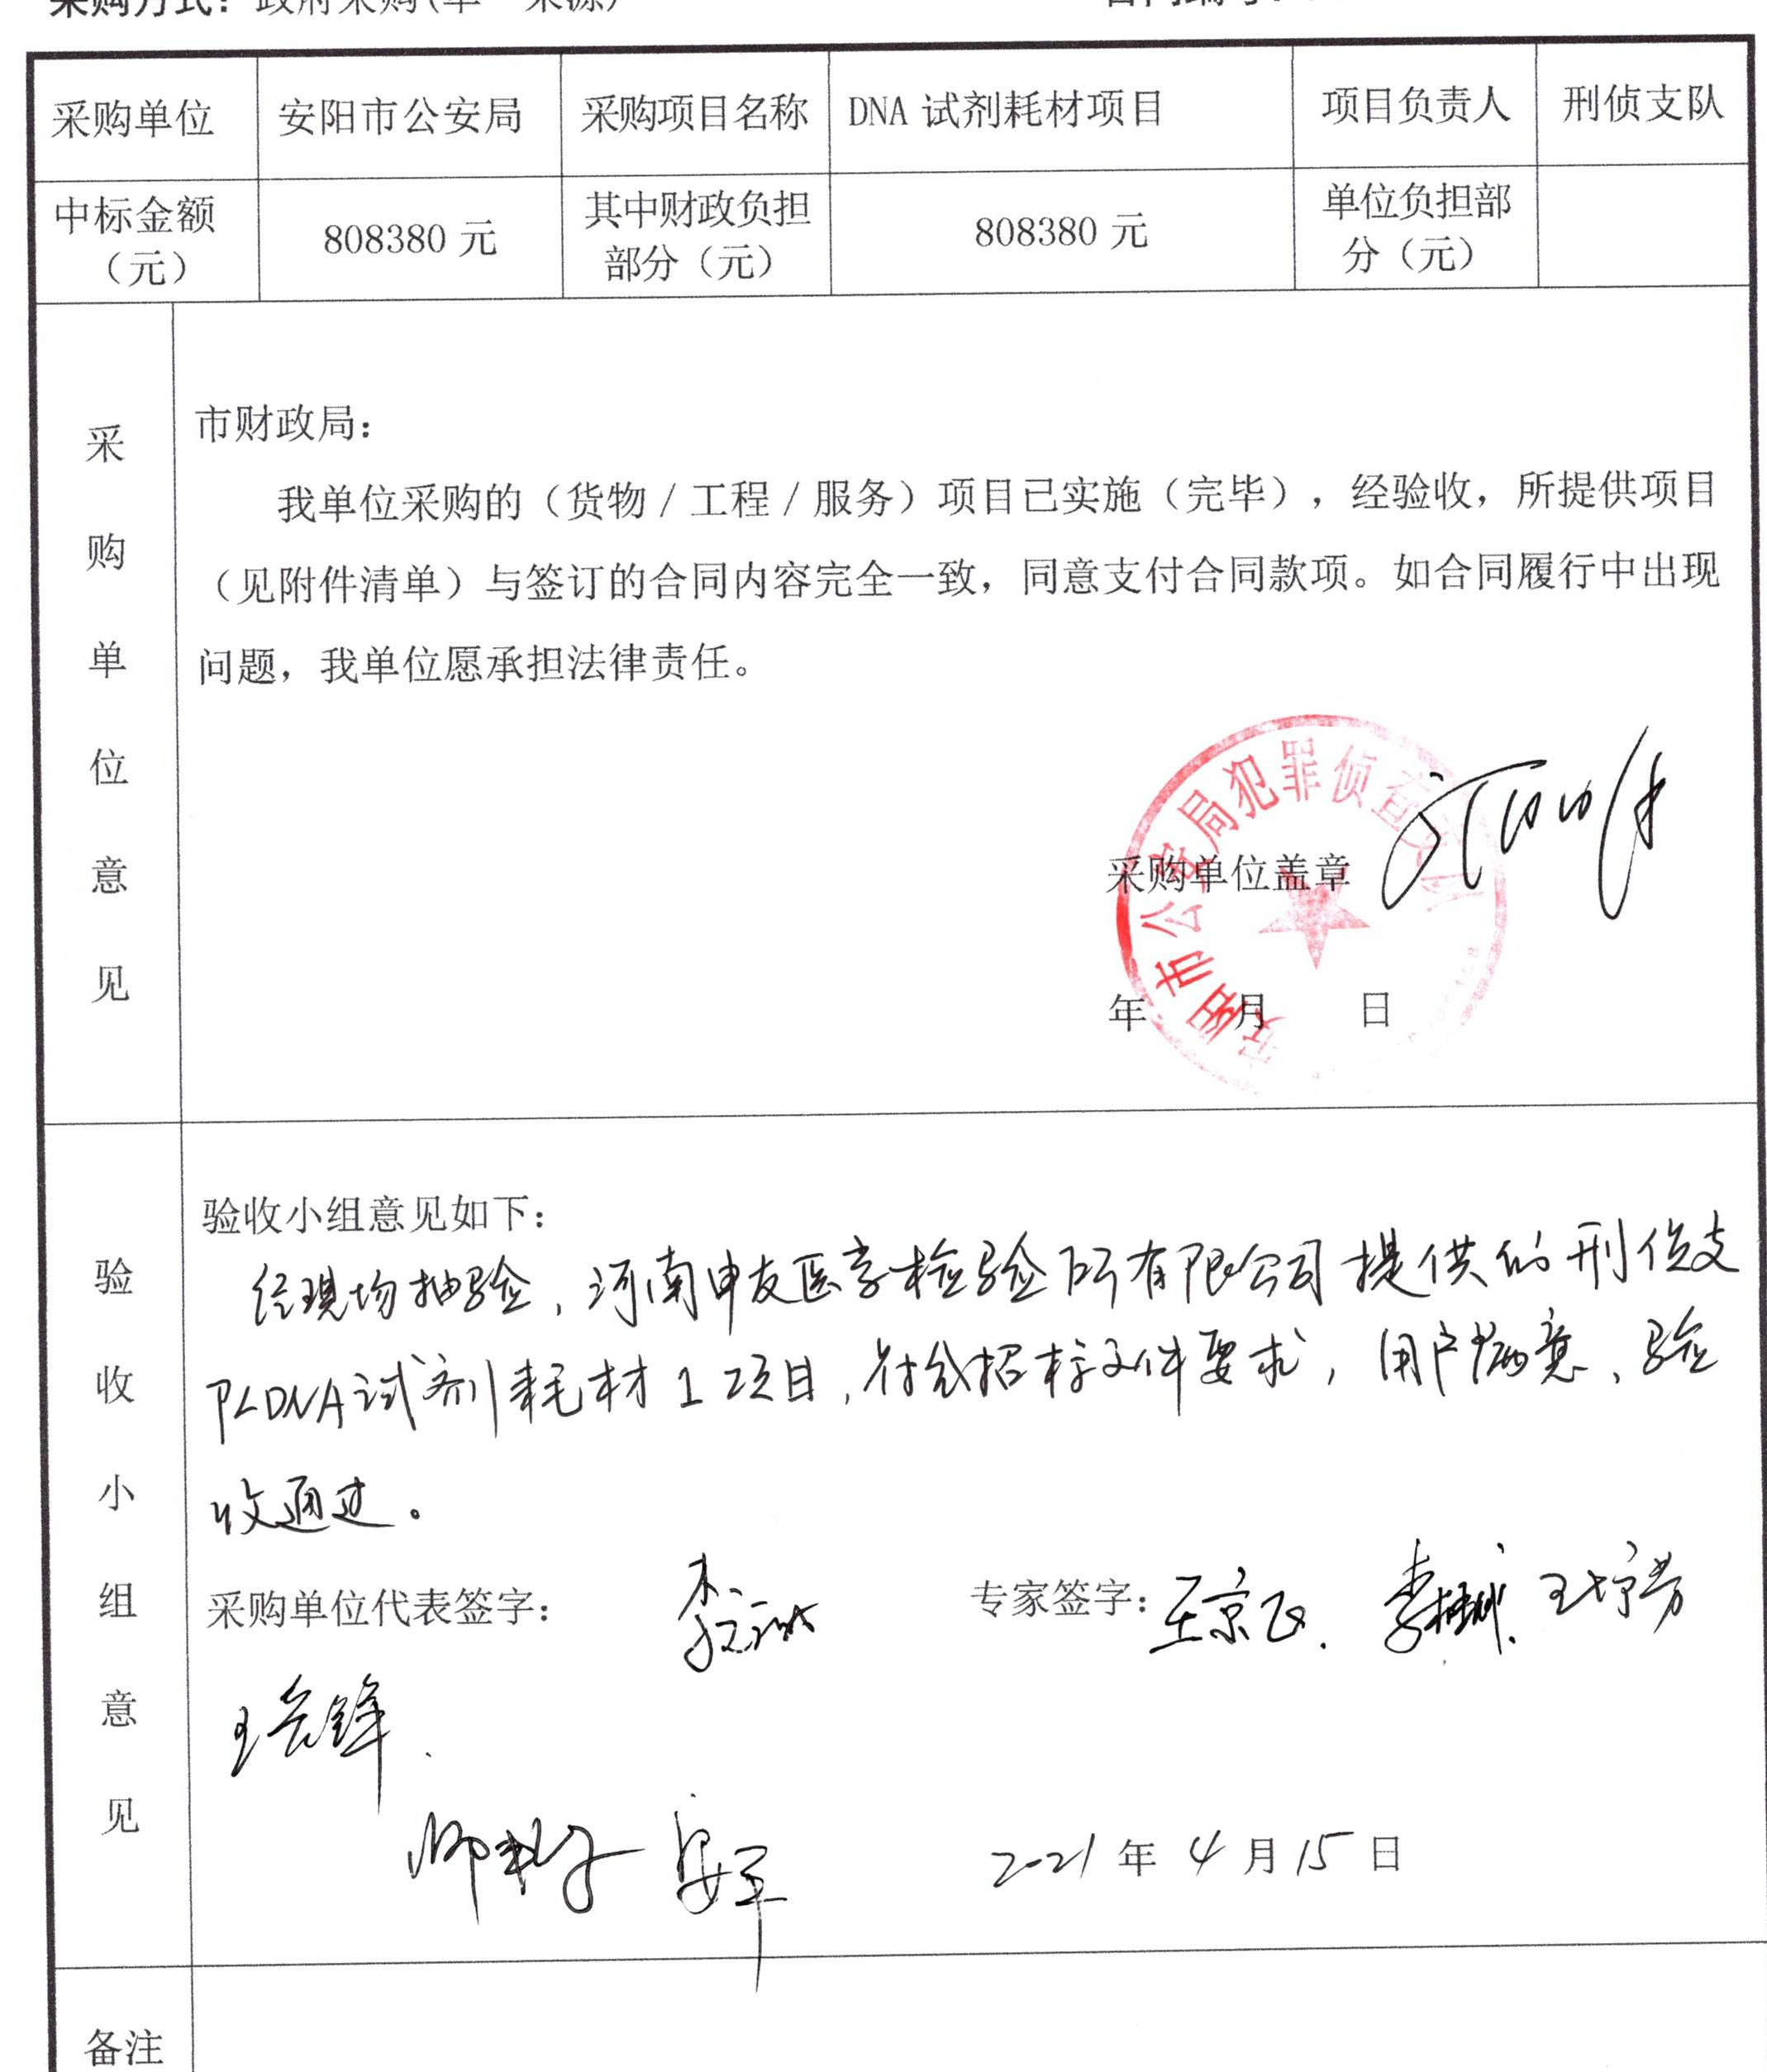 采购方式：政府采购(单一来源)
合同编号：
采购单位 安阳市公安局 采购项目名称 DNA 试剂耗材项目 项目负责人 刑侦支队
中标金额（元） 808380 元 其中财政负担部分（元） 808380 元 单位负担部分（元）
采购单位意见
市财政局：
我单位采购的（货物 / 工程 / 服务）项目已实施（完毕），经验收，所提供项目
（见附件清单）与签订的合同内容完全一致，同意支付合同款项。如合同履行中出现
问题，我单位愿承担法律责任。
安阳市公安局犯罪侦查支队
采购单位盖章
年 月 日
验收小组意见
验收小组意见如下：
经现场抽验，河南申友医学检验所有限公司提供的刑侦支
队DNA试剂耗材1项目，符合招标文件要求，用户满意，验
收通过。
采购单位代表签字：
专家签字：王京飞.
2021年4月15日
备注